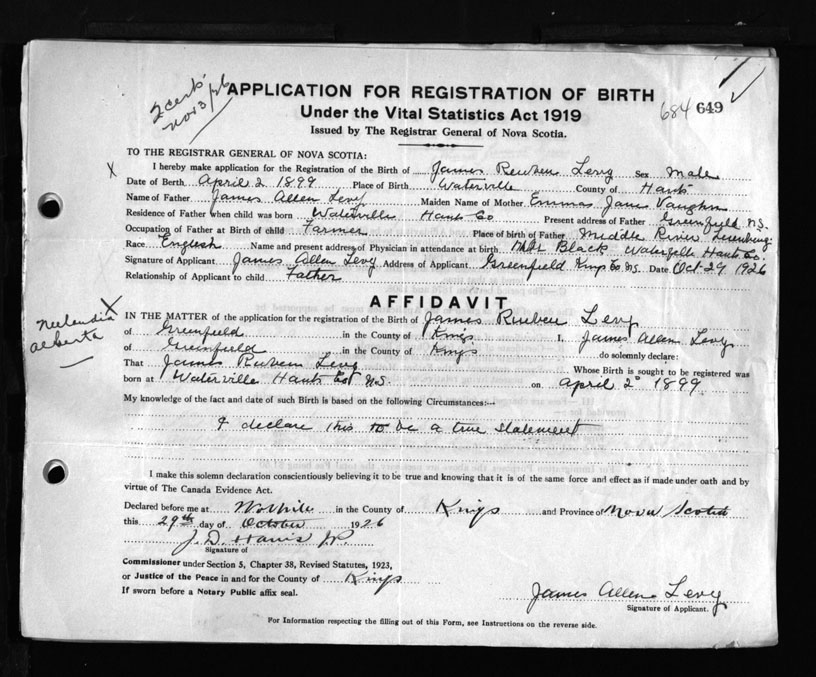 2 certs
Nov 3/26
APPLICATION FOR REGISTRATION OF BIRTH
Under the Vital Statistics Act 1919
Issued by The Registrar General of Nova Scotia.
684 649
TO THE REGISTRAR GENERAL OF NOVA SCOTIA:
I hereby make application for the Registration of the Birth of James Reuben Levy Sex Male
Date of Birth April 2 1899 Place of Birth Waterville County of Hants
Name of Father James Allen Levy Maiden Name of Mother Emma Jane Vaughn
Residence of Father when child was born Waterville Hants Co Present address of Father Greenfield N.S.
Occupation of Father at Birth of child Farmer Place of birth of Father Middle River Lunenburg
Race English Name and present address of Physician in attendance at birth Black Waterville Hants Co.
Signature of Applicant James Allen Levy Address of Applicant Greenfield Kings Co N.S. Date Oct 29 1926
Relationship of Applicant to child Father
AFFIDAVIT
X
Alberta
IN THE MATTER of the application for the registration of the Birth of James Reuben Levy
of Greenfield in the County of Kings I, James Allen Levy
of Greenfield in the County of Kings do solemnly declare:
That James Reuben Levy Whose Birth is sought to be registered was
born at Waterville Hants Co N.S. on April 2 1899
My knowledge of the fact and date of such Birth is based on the following Circumstances:—
I declare this to be a true statement
I make this solemn declaration conscientiously believing it to be true and knowing that it is of the same force and effect as if made under oath and by
virtue of The Canada Evidence Act.
Declared before me at Wolfville in the County of Kings and Province of Nova Scotia
this 29th day of October 1926
J. D. Harris J.P.
Signature of
Commissioner under Section 5, Chapter 38, Revised Statutes, 1923,
or Justice of the Peace in and for the County of Kings
If sworn before a Notary Public affix seal.
James Allen Levy
Signature of Applicant.
For Information respecting the filling out of this Form, see Instructions on the reverse side.